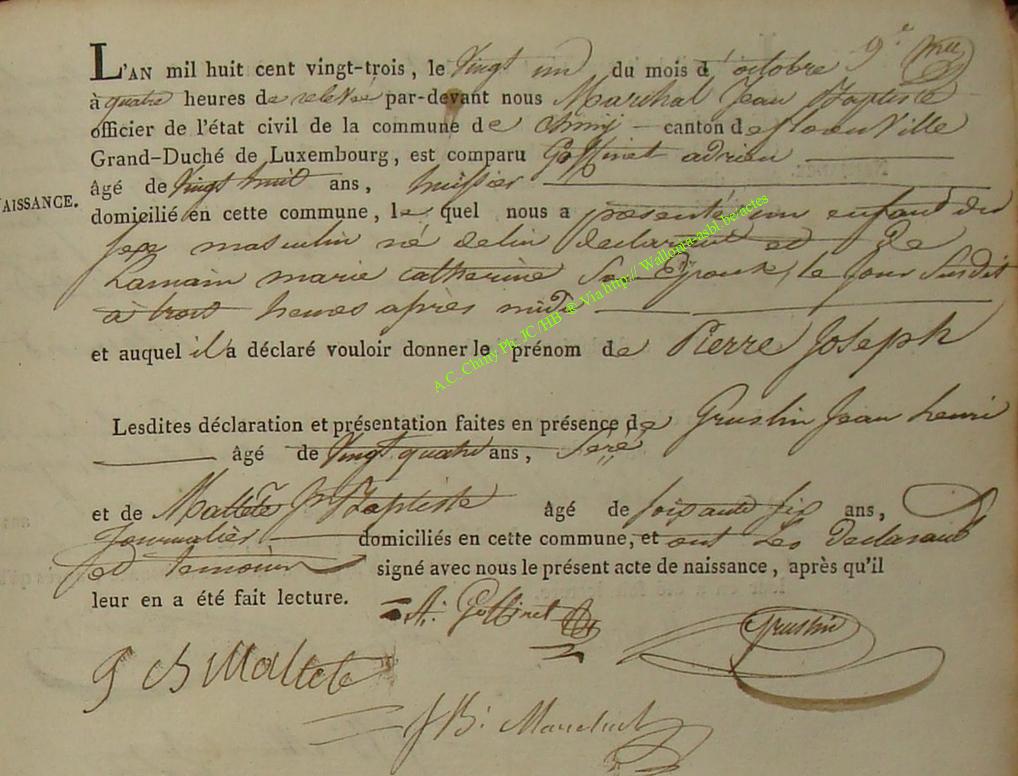 L'AN mil huit cent vingt-trois, le Vingt un du mois d'octobre 9e
à quatre heures de relevée par-devant nous Marchal Jean Baptiste
officier de l'état civil de la commune de chiny canton de florenville
Grand-Duché de Luxembourg, est comparu Goffinet adrien
NAISSANCE. âgé de Vingt huit ans, huissier
domicilié en cette commune, le quel nous a présenté un enfant du
sex masculin né de lui declarant et de
Lamain marie catherine Son Epouse, le jour Susdit
à trois heures après midi
et auquel il a déclaré vouloir donner le prénom de Pierre Joseph
Lesdites déclaration et présentation faites en présence de Gruslin Jean henri
âgé de Vingt quatre ans,
et de Maltète Jn Baptiste âgé de soixante six ans,
Journalier domiciliés en cette commune, et ont Les Declarant
et temoins signé avec nous le présent acte de naissance, après qu'il
leur en a été fait lecture.
A. Goffinet
Gruslin
Maltete
J B. Marchal
A.C. Chiny Ph. JC /HB @ Via http:// Wallonia-asbl.be/actes